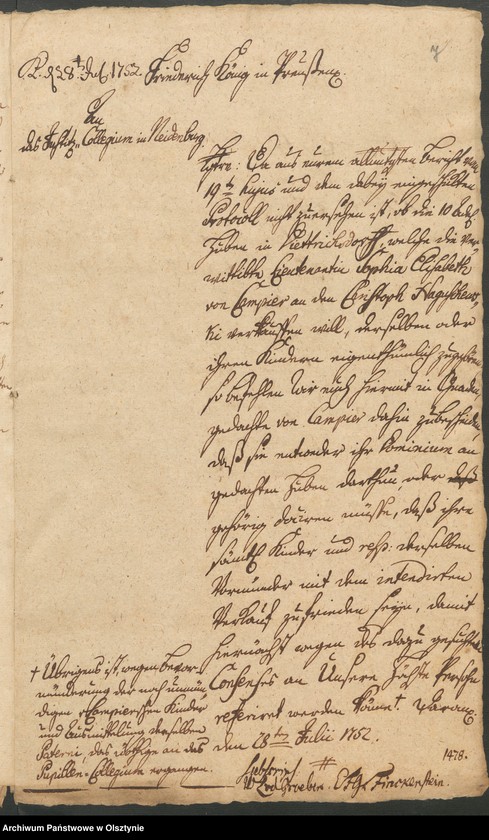 R. d 28t. Jul. 1752. Friederich König in Preußen p.
An
das Justitz-Collegium in Neidenburg.
Da aus eurem Bericht vom
19ten hujus und dem dabey eingeschickten
Protocoll nicht zuersehen ist, ob die 10
Huben in Pietrichsdorff, welche die ver-
wittibte Lieutenantin Sophia Elisabeth
von Campier an den Christoph
ki verkauffen will, derselben oder
ihren Kindern eigenthümlich zugehören
so befehlen Wir euch hiermit in Gnaden,
gedachte von Campier dahin zubescheiden,
daß sie entweder ihr Dominium an
gedachten Huben darthun, oder daß
gehörig dociren müsse, daß ihre
sämtl. Kinder und resp. derselben
Vormünder mit dem intendirten
Verkauf zufrieden seyn, damit
hiernächst wegen des dazu gesuchten
Consenses an Unsere Höchste Persohn
referiret werden könne †.
den 28ten Julii 1752.
† Übrigens ist, wegen Bevor-
mündung der noch unmün-
digen Campierschen Kinder
und Ausmittelung derselben
Paterni, das nöthige an das
Pupillen-Collegium ergangen.
1478.
Finckenstein.
Archiwum Państwowe w Olsztynie